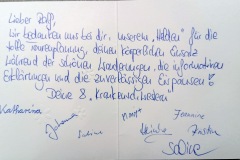 Lieber Rolf,
Wir bedanken uns bei dir, unserem "Helden" für die
tolle Tourenplanung, deinen körperlichen Einsatz
während der schönen Wanderungen, die informativen
Erklärungen und die zuverlässigen Einpausen!
Deine 8 Krankenschwestern
Katharina Johanna Sabine Jeannine
Kirsten
Sabine